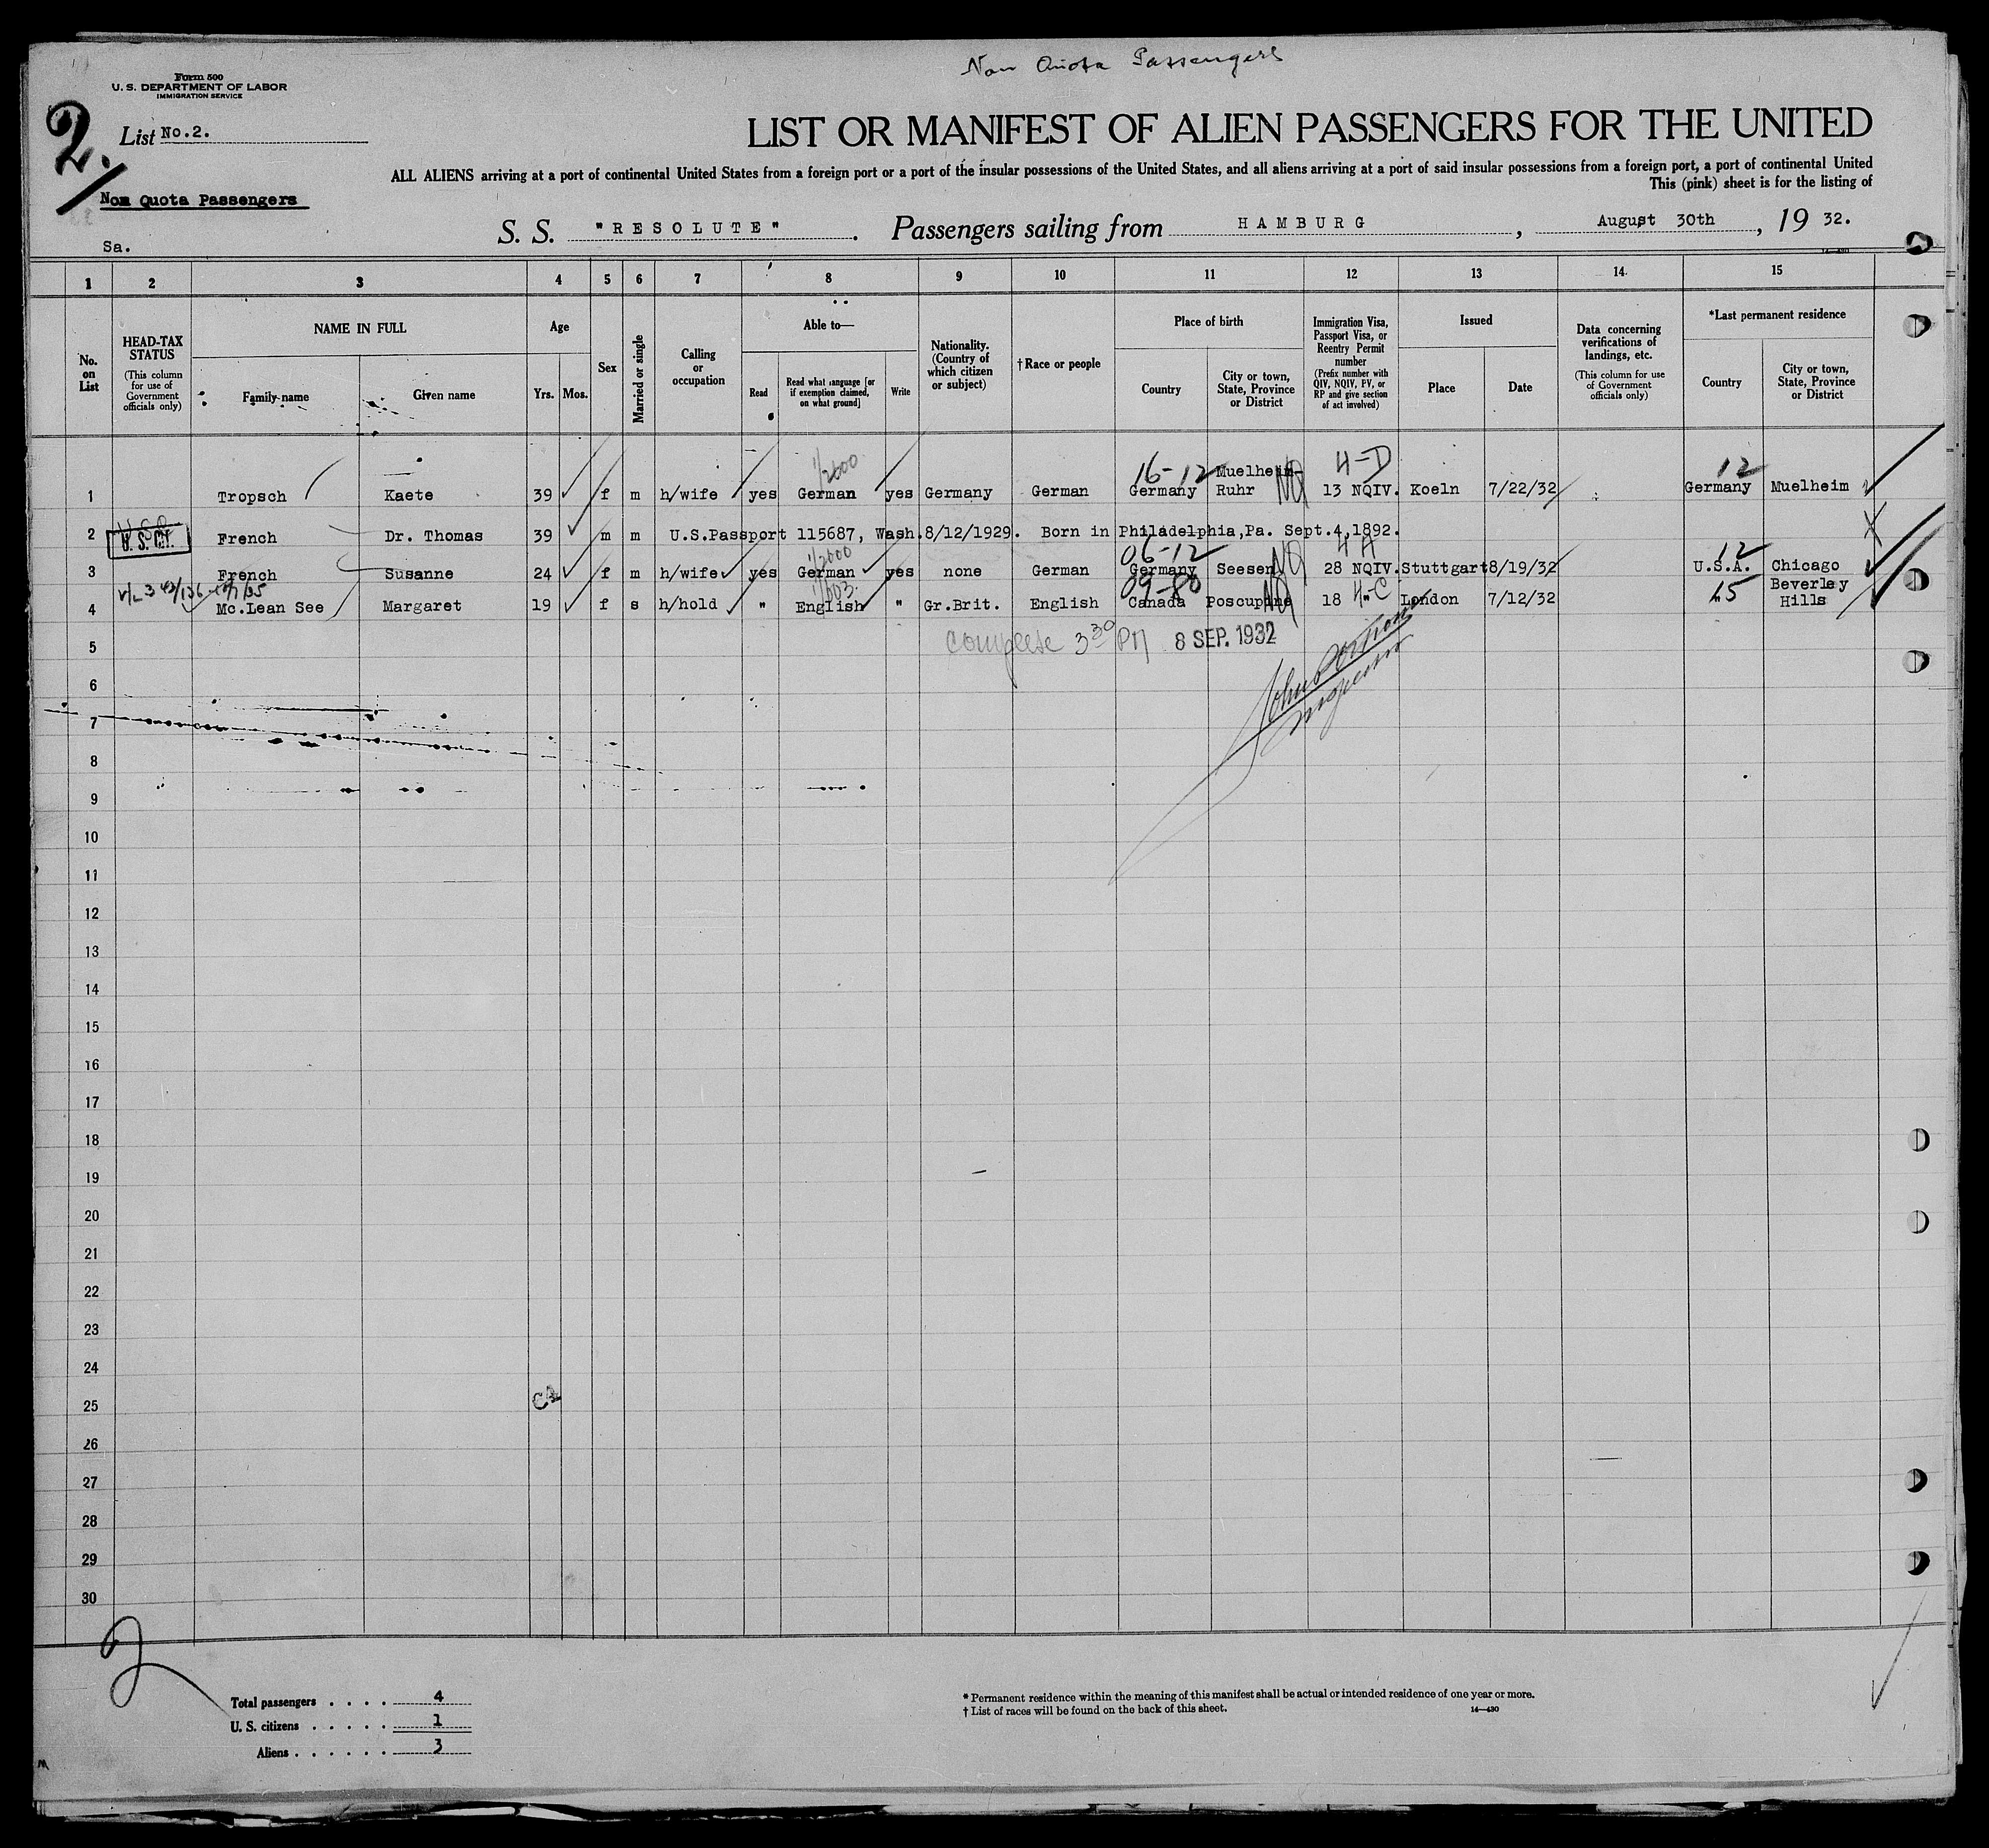 Non Quota Passengers
Form 500
U. S. DEPARTMENT OF LABOR
IMMIGRATION SERVICE
2.
List No.2.
LIST OR MANIFEST OF ALIEN PASSENGERS FOR THE UNITED
ALL ALIENS arriving at a port of continental United States from a foreign port or a port of the insular possessions of the United States, and all aliens arriving at a port of said insular possessions from a foreign port, a port of continental United
This (pink) sheet is for the listing of
Non Quota Passengers
S. S. "RESOLUTE". Passengers sailing from HAMBURG, August 30th, 19 32.
Sa.
14—430
1 2 3 4 5 6 7 8 9 10 11 12 13 14 15
No. on List
HEAD-TAX STATUS
(This column for use of Government officials only)
NAME IN FULL
Family name
Given name
Age
Yrs. Mos.
Sex
Married or single
Calling or occupation
Able to—
Read
Read what language [or if exemption claimed, on what ground]
Write
Nationality. (Country of which citizen or subject)
†Race or people
Place of birth
Country
City or town, State, Province or District
Immigration Visa, Passport Visa, or Reentry Permit number
(Prefix number with QIV, NQIV, PV, or RP and give section of act involved)
Issued
Place
Date
Data concerning verifications of landings, etc.
(This column for use of Government officials only)
*Last permanent residence
Country
City or town, State, Province or District
1/2600 16-12 Muelheim- 4-D 12
1 Tropsch Kaete 39 f m h/wife yes German yes Germany German Germany Ruhr NQ 13 NQIV. Koeln 7/22/32 Germany Muelheim
2 U.S.Ct. French Dr. Thomas 39 m m U.S.Passport 115687, Wash.8/12/1929. Born in Philadelphia,Pa. Sept.4,1892.
1/2600 06-12 4 A 12
3 French Susanne 24 f m h/wife yes German yes none German Germany Seesen NQ 28 NQIV. Stuttgart 8/19/32 U.S.A. Chicago
09-80 4-C 15 Beverley
4 Mc.Lean See Margaret 19 f s h/hold " English " Gr.Brit. English Canada Poscupine NQ 18 " London 7/12/32 " Hills
complete 3 30 PM 8 SEP. 1932
5
6
7
8
9
10
11
12
13
14
15
16
17
18
19
20
21
22
23
24
25
26
27
28
29
30
2
Total passengers . . . . 4
U. S. citizens . . . . . 1
Aliens . . . . . . 3
* Permanent residence within the meaning of this manifest shall be actual or intended residence of one year or more.
† List of races will be found on the back of this sheet.
14—430